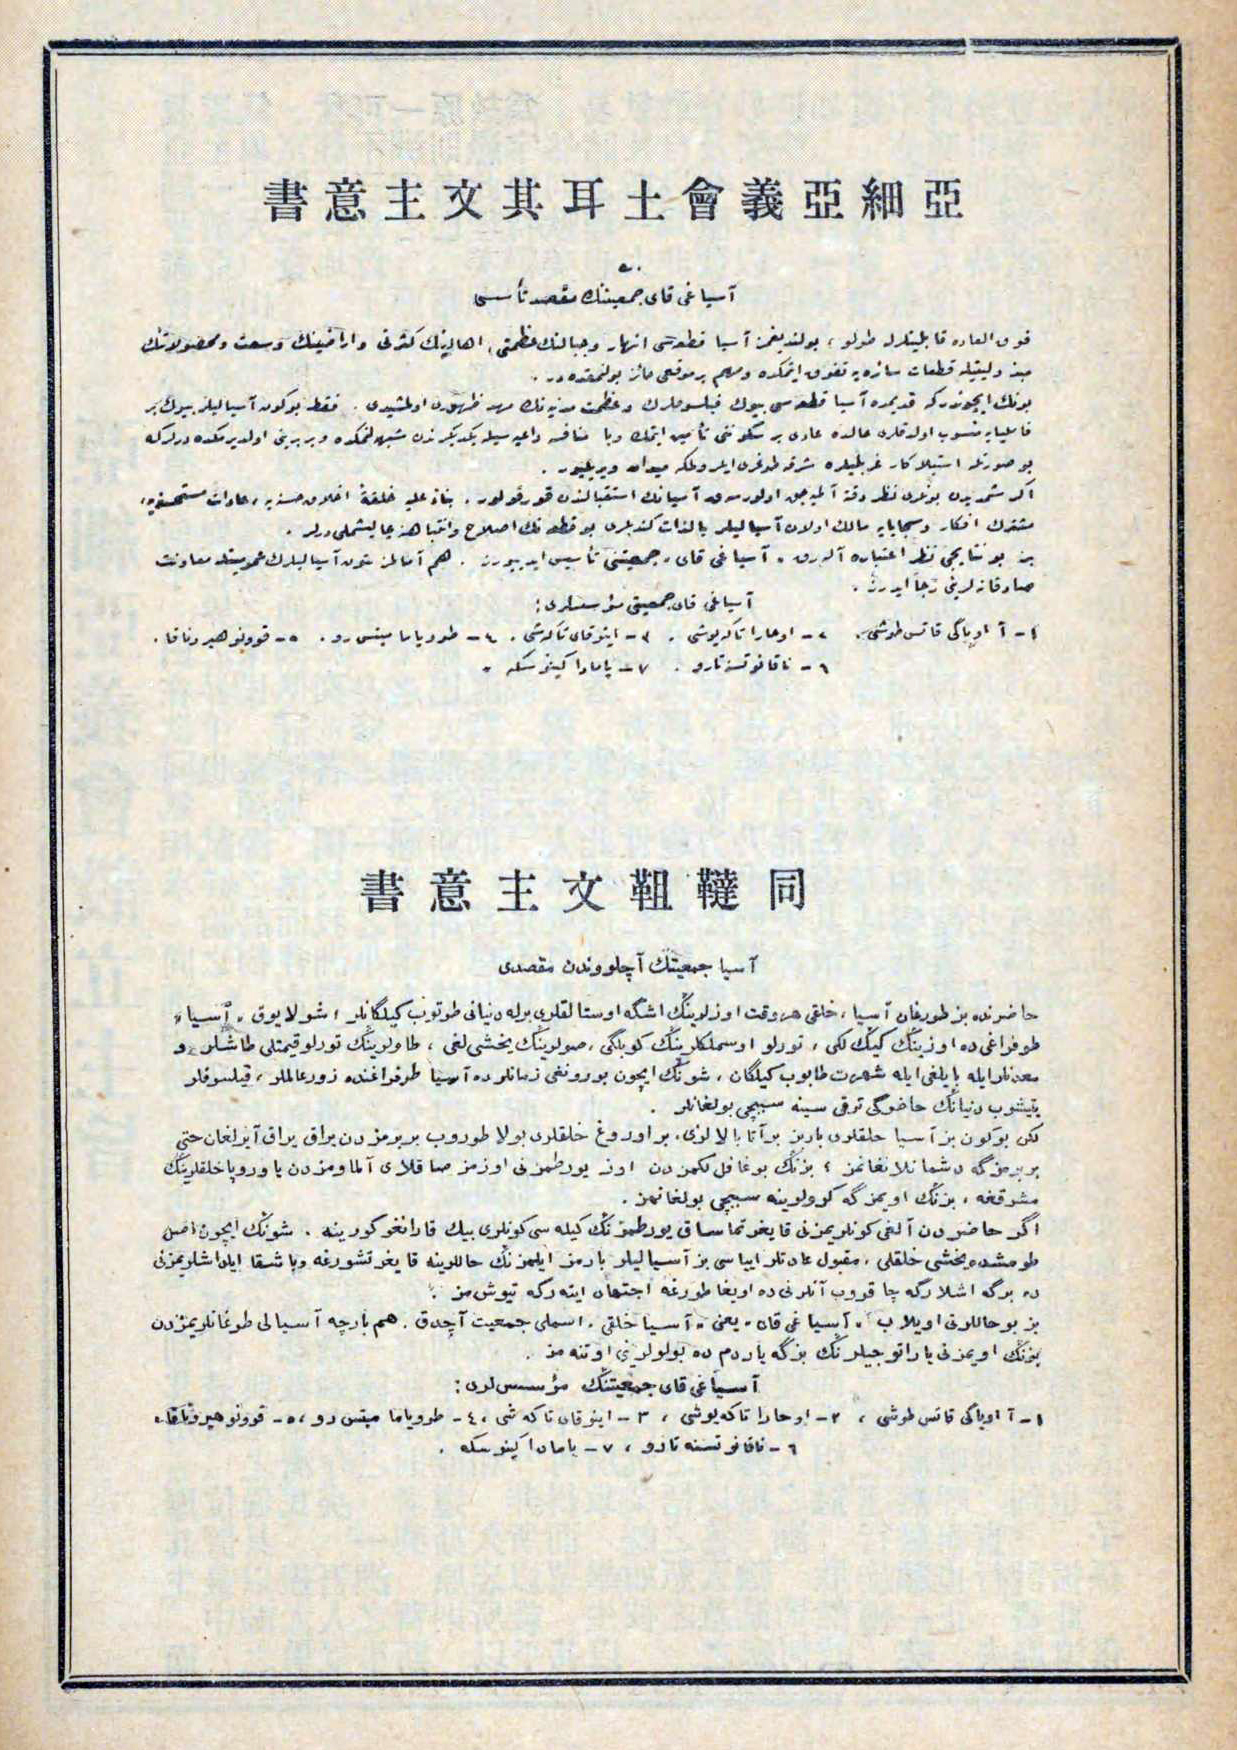 亞細亞義會土耳其文主意書
آسیا غی قای جمعیتنك مقصد تأسیسی
فوق العاده قابلیتلرله طولو ، بولندیغمز آسیا قطعه‌سی انهار وجبالنك عظمتی ، اهالیسنك كثرتی واراضیسنك وسعت ومحصولاتنك
قطعات سائره‌یه تفوق ایتمكده ومهم بر موقعی حائز بولنمقده‌در .
بونك ایچوندركه قدیمده آسیا قطعه‌سی بیوك فیلسوفلرك وعظمت مدنیه‌نك مهد ظهوری اولمشیدی . فقط بوكون آسیالیلر بیوك بر
فامیلیایه منسوب اولدقلری حالده عادی بر سكونتی تأمین ایتمك ویا منافسه داعیه‌سیله یكدیكرندن شبهه‌لنمكده وبربرینی اولدیرمكده‌درلركه
بو صورتله استیلاكار غربلیلره شرقه طوغری ایلرولمكه میدان ویریلیور .
اكر شمدیدن بونلری نظر دقته آلمیه‌جق اولورسه‌ق آسیانك استقبالندن قورقولور . بناءً علیه خلقةً اخلاق حسنه‌یه ، عادات مستحسنه‌یه ،
مشترك افكار وسجایایه مالك اولان آسیالیلر بالذات كندیلری بو قطعه‌نك اصلاح وانتباهنه چالیشملیدرلر .
بز بو نتایجی نظر اعتباره آله‌رق « آسیا غی قای » جمعیتنی تأسیس ایدییورز . هم آمالمز بتون آسیالیلرك معاونت
صادقانه‌لرینی رجا ایدرز .
آسیا غی قای جمعیتی مؤسسلری :
١ـ آ اویاكی قاتس طوشی . ٢ـ اوحارا تاكه‌یوشی . ٣ـ اینوقای تاكه‌شی . ٤ـ طوریاما میتس رو . ٥ـ قوونو هیروناقا .
٦ـ ناقانو تسنه‌تارو . ٧ـ یامادا كینوسكه .
同韃靼文主意書
آسیا جمعیتنك آچلووندن مقصدی
حاضرنده بز طورغان آسیا ، خلقی هر وقت اوزلرینك اشگه اوستالقلری برله دنیانی طوتوب كیلگانلر ؛ شولایوق « آسیا »
طوفراغی ده اوزینك كینك لكی ، تورلو اوسملكلرینك كوبلگی ، صولرینك یخشی لغی ، طاولرینك تورلو قیمتلی طاشلر و
معدنلر ایله بایلغی ایله شهرت طابوب كیلگان ، شونك ایچون بورونغی زمانلرده آسیا طوفراغنده زور عالملر ، فیلسوفلر
یتیشوب دنیانك حاضرگی ترقی سینه سببچی بولغانلر .
لكن بوكون بز آسیا خلقلری باربز بر آتا بالالری ، بر اوروغ خلقلری بولا طوروب بربرمزدن یراق یراق آیرلغان حتی
بربرمزگه دشمانلانغانمز ؛ بزنك بو غافل لكمزدن اوز یورطمزنی اوزمز صاقلای آلماومزدن یاوروپا خلقلرینك
مشرقغه ، بزنك اویمزگه كرولرینه سببچی بولغانمز .
اگر حاضردن آلغی كونلریمزنی قایغرتماساق یورطمزنك كیله‌سی كونلری بیك قارانغو كورینه . شونك ایچون اصل
طومشده یخشی خلقلی ، مقبول عادتلر اییاسی بز آسیالیلر بارمز ایلیمزنك حاللرینه قایغرتشورغه وباشقا ایلداشلریمزنی
ده برگه اشلارگه چاقروب آنلرنی ده اویغا طورغه اجتهاد ایته‌رگه تیوش‌مز .
بز بو حاللرنی اویلاب « آسیا غی قای » یعنی « آسیا خلقی » اسملی جمعیت آچدق . هم بارچه آسیالی طوغانلریمزدن
بزنك اویمزنی یاراتوجیلرنك بزگه یاردم ده بولولرینی اوتنه‌مز .
آسیا غی قای جمعیتنك مؤسس‌لری :
١ـ آ اویاكی قاتس طوشی ، ٢ـ اوحارا تاكه‌یوشی ، ٣ـ اینوقای تاكه‌شی ، ٤ـ طوریاما میتس رو ، ٥ـ قوونو هیروناقا ،
٦ـ ناقانو تسنه تارو ، ٧ـ یامادا كینوسكه .